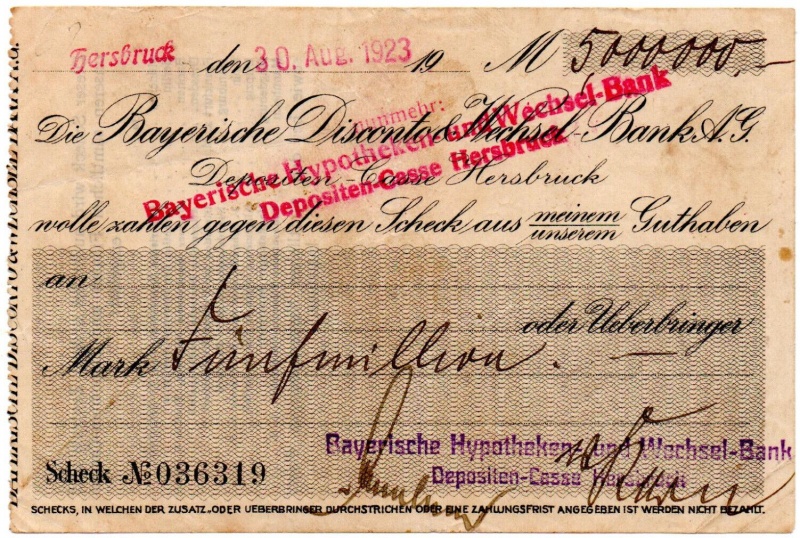 Hersbruck den 30. Aug. 1923 19 M 5000000,-
nunmehr:
Bayerische Hypotheken- und Wechsel-Bank
Depositen-Casse Hersbruck
Die Bayerische Disconto & Wechsel-Bank A.G.
Depositen-Casse Hersbruck
wolle zahlen gegen diesen Scheck aus meinem
unserem Guthaben
an
oder Ueberbringer
Mark Fünfmillion.
Bayerische Hypotheken- und Wechsel-Bank
Depositen-Casse Hersbruck
Scheck No 036319
SCHECKS, IN WELCHEN DER ZUSATZ „ODER UEBERBRINGER" DURCHSTRICHEN ODER EINE ZAHLUNGSFRIST ANGEGEBEN IST WERDEN NICHT BEZAHLT.